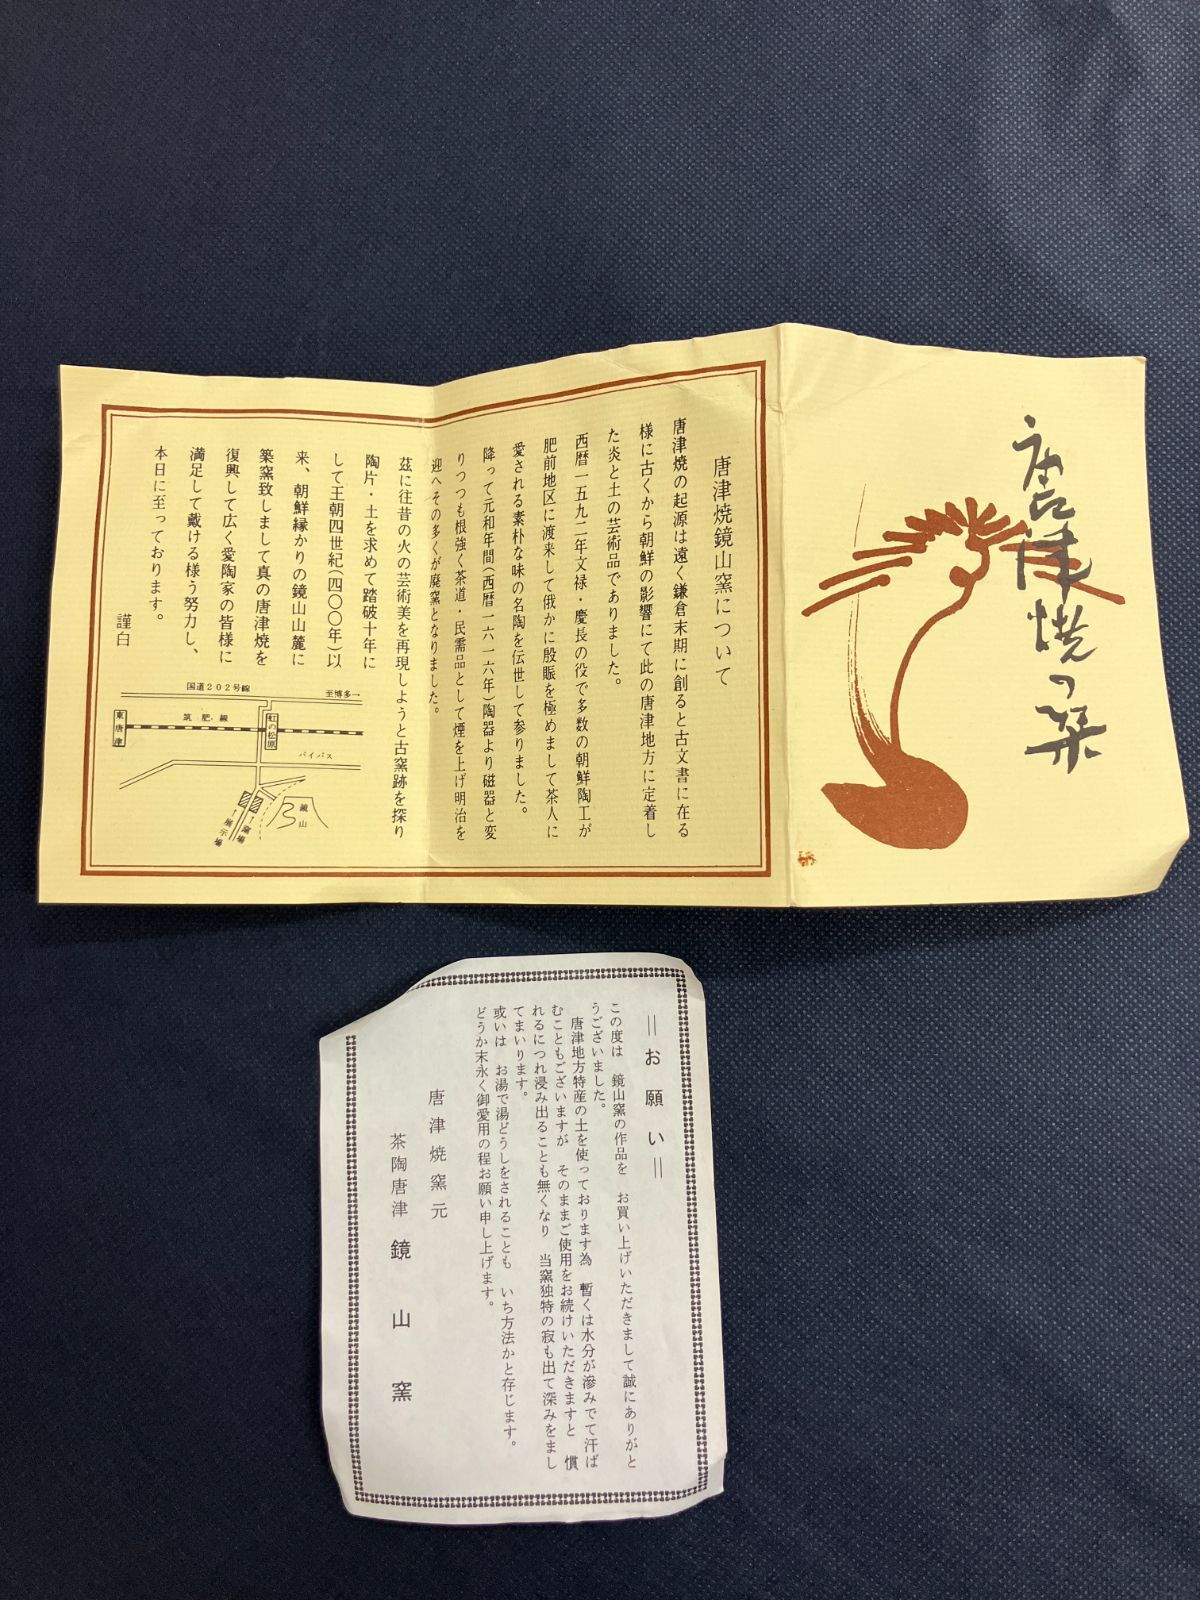 唐津焼の栞
唐津焼鏡山窯について
唐津焼の起源は遠く鎌倉末期に創ると古文書に在る
様に古くから朝鮮の影響にて此の唐津地方に定着し
た炎と土の芸術品でありました。
西暦一五九二年文禄・慶長の役で多数の朝鮮陶工が
肥前地区に渡来して俄かに殷賑を極めまして茶人に
愛される素朴な味の名陶を伝世して参りました。
降って元和年間(西暦一六一六年)陶器より磁器と変
りつつも根強く茶道・民需品として煙を上げ明治を
迎へその多くが廃窯となりました。
茲に往昔の火の芸術美を再現しようと古窯跡を探り
陶片・土を求めて踏破十年に
して王朝四世紀(四〇〇年)以
来、朝鮮縁かりの鏡山山麓に
築窯致しまして真の唐津焼を
復興して広く愛陶家の皆様に
満足して戴ける様う努力し、
本日に至っております。
謹白
国道202号線
至博多→
筑肥線
東唐津
虹の松原
バイパス
鏡山
↑窯場
↑展示場
=お願い=
この度は 鏡山窯の作品を お買い上げいただきまして誠にありがと
うございました。
唐津地方特産の土を使っております為 暫くは水分が滲みでて汗ば
むこともございますが そのままご使用をお続けいただきますと 慣
れるにつれ浸み出ることも無くなり 当窯独特の寂も出て深みをまし
てまいります。
或いは お湯で湯どうしをされることも いち方法かと存じます。
どうか末永く御愛用の程お願い申し上げます。
唐津焼窯元
茶陶唐津 鏡山窯